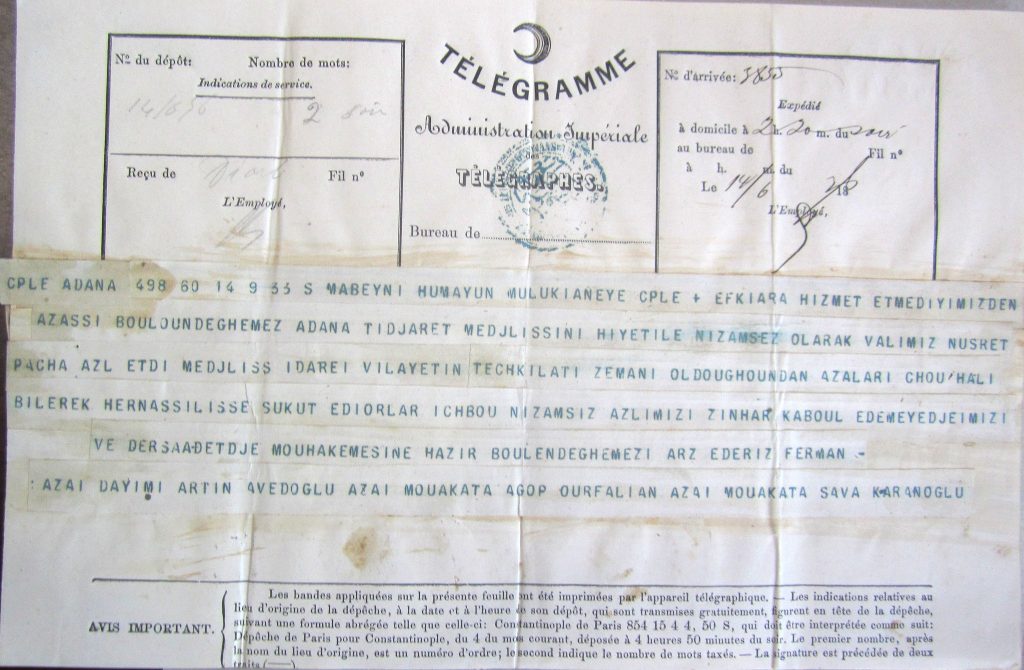 TÉLÉGRAMME
Administration Impériale
des
TÉLÉGRAPHES.
Bureau de
No du dépôt:
Nombre de mots:
Indications de service.
14/6/96 2 soir
Reçu de
Fil no
L'Employé,
No d'arrivée: 3855
Expédié
à domicile à 2 h. 20 m. du soir
au bureau de Fil no
à h. m. du
Le 14/6 18
L'Employé,
CPLE ADANA 498 60 14 9 35 S MABEYNI HUMAYUN MULUKIANEYE CPLE + EFKIARA HIZMET ETMEDIYIMIZDEN
AZASSI BOULOUNDEGHEMEZ ADANA TIDJARET MEDJLISSINI HIYETILE NIZAMSEZ OLARAK VALIMIZ NUSRET
PACHA AZL ETDI MEDJLISS IDAREI VILAYETIN TECHKILATI ZEMANI OLDOUGHOUNDAN AZALARI CHOU'HALI
BILEREK HERNASSILISSE SUKUT EDIORLAR ICHBOU NIZAMSIZ AZLIMIZI ZINHAR KABOUL EDEMEYEDJEIMIZI
VE DERSAADETDJE MOUHAKEMESINE HAZIR BOULENDEGHEMEZI ARZ EDERIZ FERMAN -
AZAI DAYIMI ARTIN AVEDOGLU AZAI MOUAKATA AGOP OURFALIAN AZAI MOUAKATA SAVA KARANOGLU
AVIS IMPORTANT.
Les bandes appliquées sur la présente feuille ont été imprimées par l'appareil télégraphique. — Les indications relatives au
lieu d'origine de la dépêche, à la date et à l'heure de son dépôt, qui sont transmises gratuitement, figurent en tête de la dépêche,
suivant une formule abrégée telle que celle-ci: Constantinople de Paris 854 15 4 4, 50 S, qui doit être interprétée comme suit:
Dépêche de Paris pour Constantinople, du 4 du mois courant, déposée à 4 heures 50 minutes du soir. Le premier nombre, après
la nom du lieu d'origine, est un numéro d'ordre; le second indique le nombre de mots taxés. — La signature est précédée de deux
traits (—)